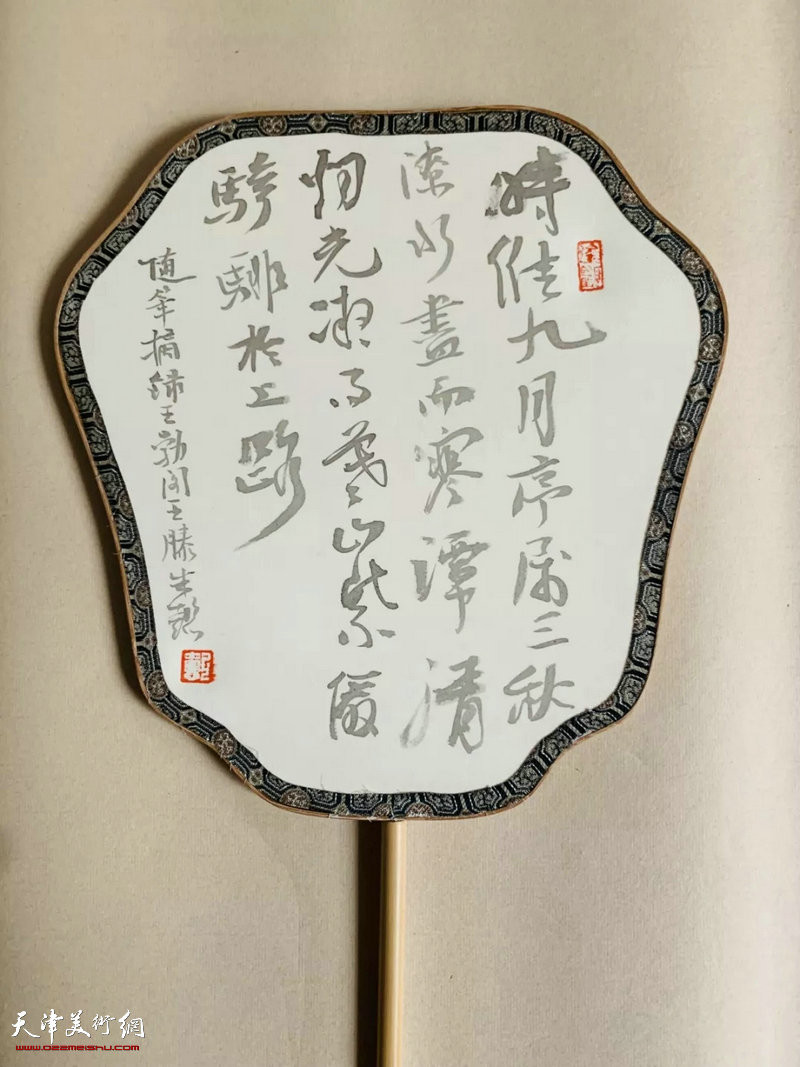 時維九月序属三秋
潦水盡而寒潭清
烟光凝而暮山紫儼
驂騑於上路
随筆摘錦王勃阁王滕
天津美術網
www.022meishu.com